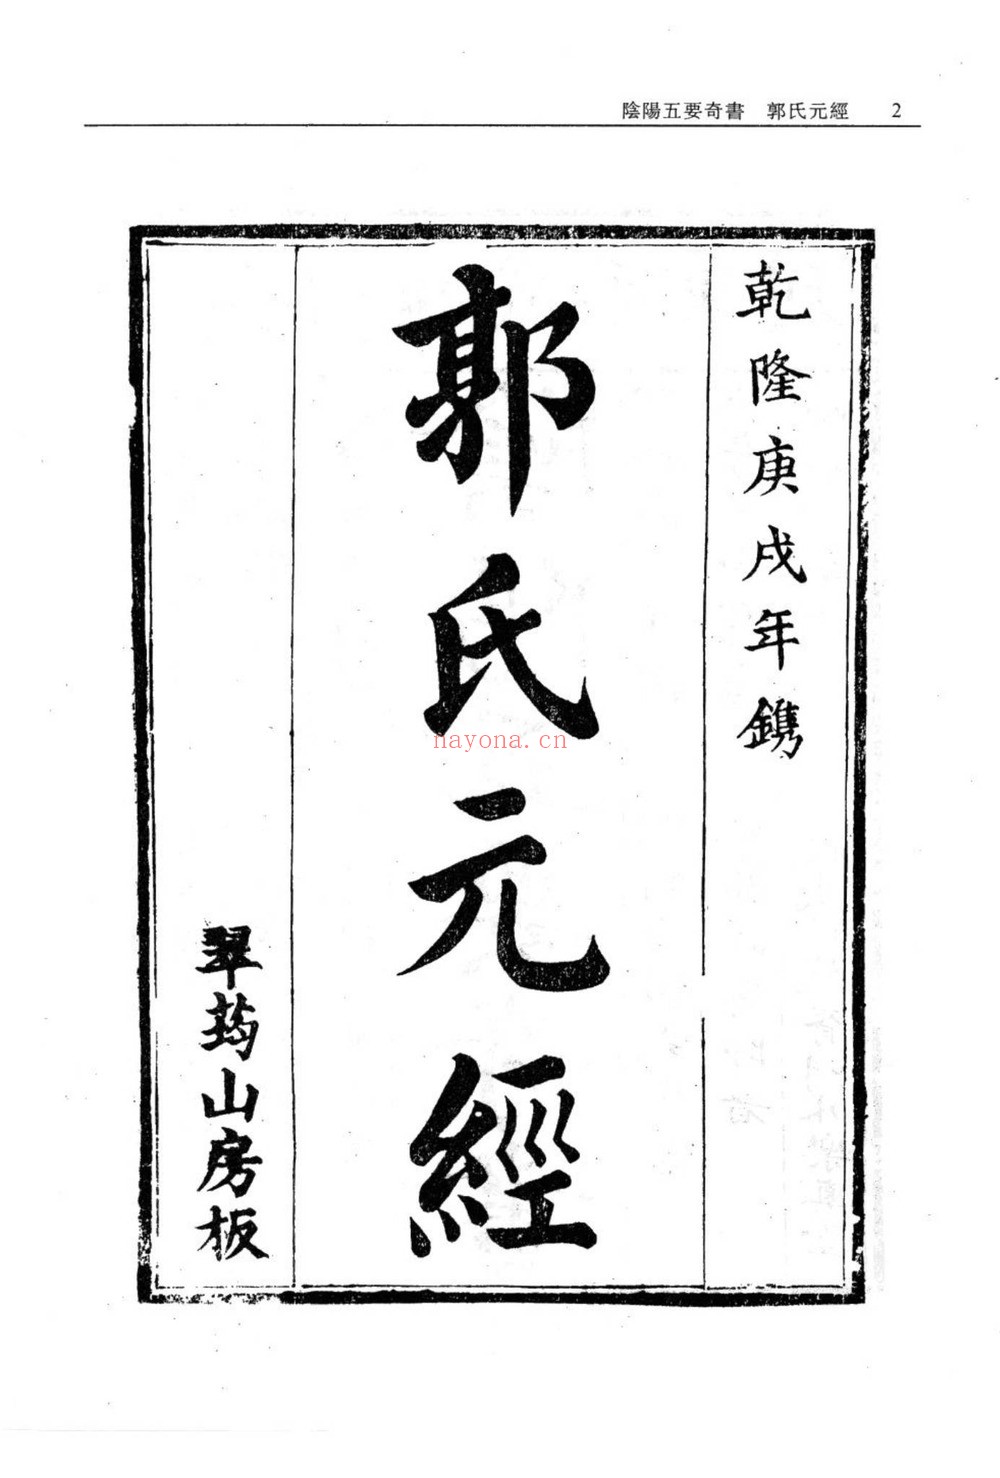 陰陽五要奇書 郭氏元經 2
乾隆庚戌年鐫
郭氏元經
翠筠山房板
nayona.cn